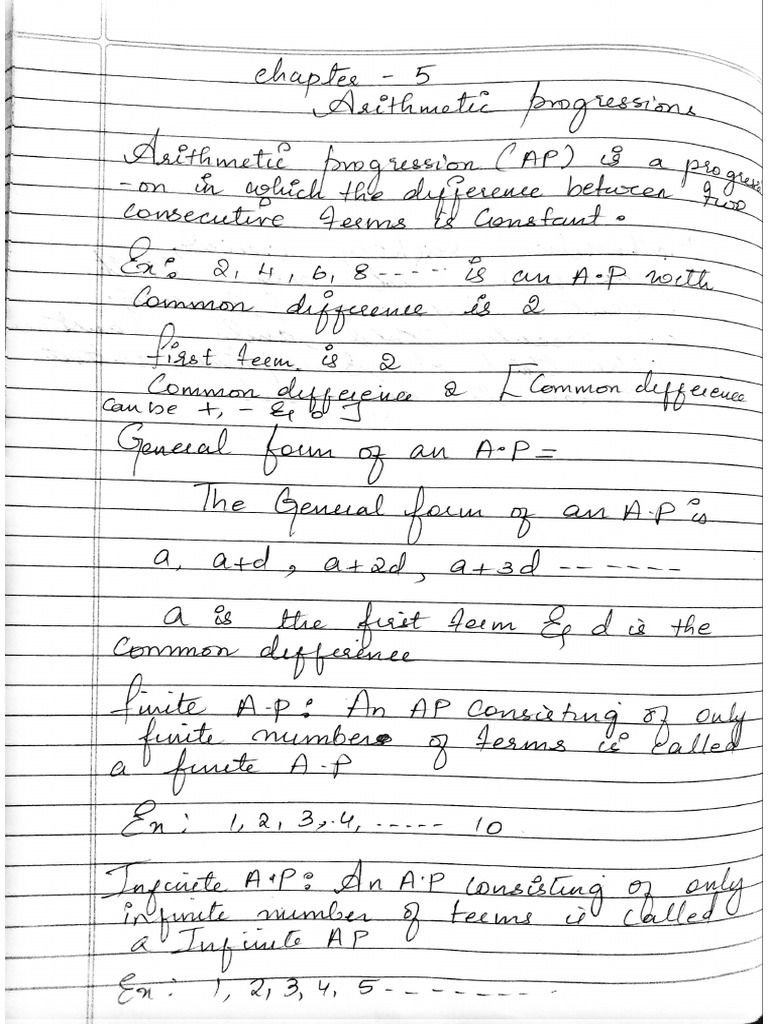 chapter - 5
Arithmetic progressions
Arithmetic progression (AP) is a progressi
-on in which the difference between two
consecutive terms is constant.
Ex: 2, 4, 6, 8 ---- is an A.P with
Common difference is 2
first term is 2
Common difference 2 [Common difference
can be +, - & 0]
General form of an A.P =
The General form of an A.P is
a, a+d, a+2d, a+3d -------
a is the first term & d is the
Common difference
finite A.P: An AP consisting of only
finite numbers of terms is called
a finite A.P
Ex: 1, 2, 3, 4, ----- 10
Infinite A.P: An A.P consisting of only
infinite number of terms is called
a Infinite AP
Ex: 1, 2, 3, 4, 5 --------